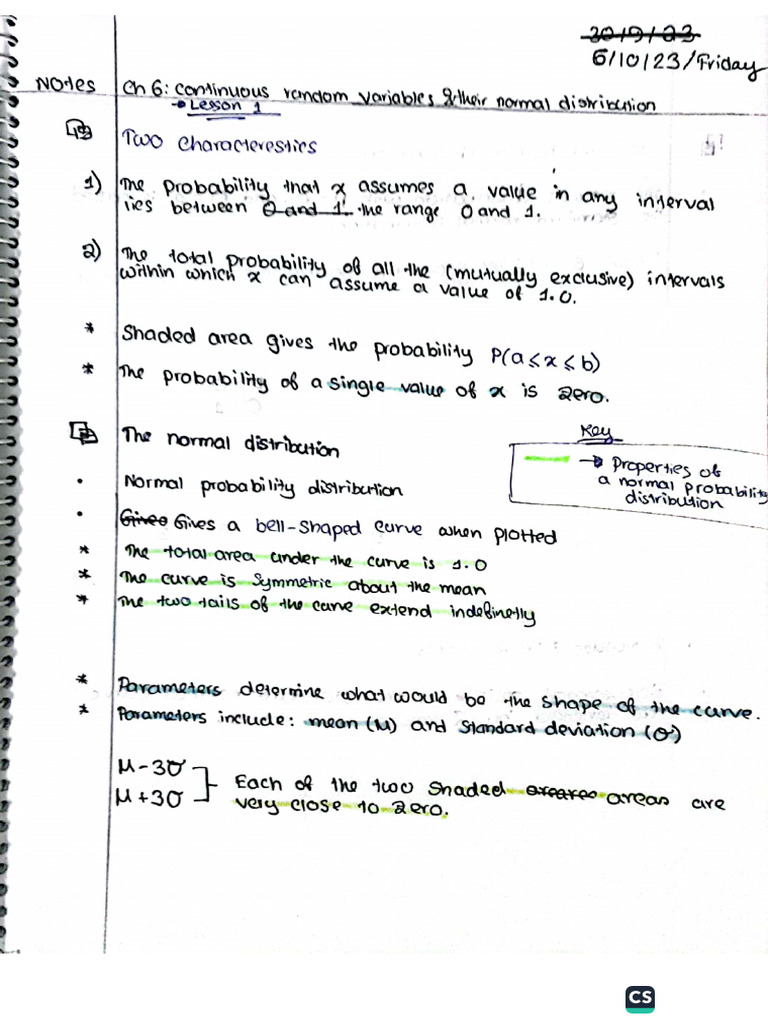 30/9/23
6/10/23/Friday
Notes
Ch 6: Continuous random variables & their normal distribution
→ Lesson 1
Two Characterestics
1) The probability that x assumes a value in any interval
lies between 0 and 1 the range 0 and 1.
2) The total probability of all the (mutually exclusive) intervals
within which x can assume a value of 1.0.
* Shaded area gives the probability P(a ≤ x ≤ b)
* The probability of a single value of x is zero.
The normal distribution
Key
→ Properties of
a normal probability
distribution
• Normal probability distribution
• Gives a bell-shaped curve when plotted
* The total area under the curve is 1.0
* The curve is symmetric about the mean
* The two tails of the curve extend indefinetly
* Parameters determine what would be the shape of the curve.
* Parameters include: mean (μ) and standard deviation (σ)
μ-3σ
μ+3σ
Each of the two shaded areas are
very close to zero.
CS